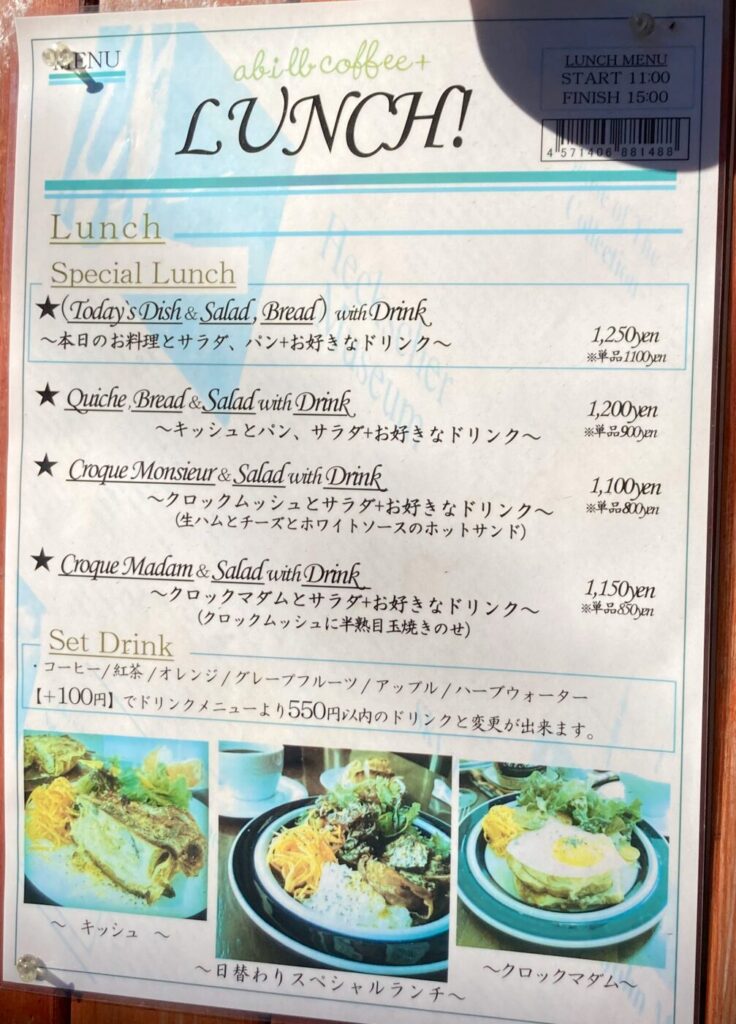 MENU
abill coffee+
LUNCH!
LUNCH MENU
START 11:00
FINISH 15:00
4 571406 881488
Lunch
Special Lunch
★(Today`s Dish & Salad , Bread) with Drink
～本日のお料理とサラダ、パン+お好きなドリンク～
1,250yen
※単品1100yen
★ Quiche , Bread & Salad with Drink
～キッシュとパン、サラダ+お好きなドリンク～
1,200yen
※単品900yen
★ Croque Monsieur & Salad with Drink
～クロックムッシュとサラダ+お好きなドリンク～
(生ハムとチーズとホワイトソースのホットサンド)
1,100yen
※単品800yen
★ Croque Madam & Salad with Drink
～クロックマダムとサラダ+お好きなドリンク～
(クロックムッシュに半熟目玉焼きのせ)
1,150yen
※単品850yen
Set Drink
・コーヒー/紅茶/オレンジ/グレープフルーツ/アップル/ハーブウォーター
【+100円】でドリンクメニューより550円以内のドリンクと変更が出来ます。
～ キッシュ ～
～日替わりスペシャルランチ～
～クロックマダム～
Heckscher
Museum
of The
Collection